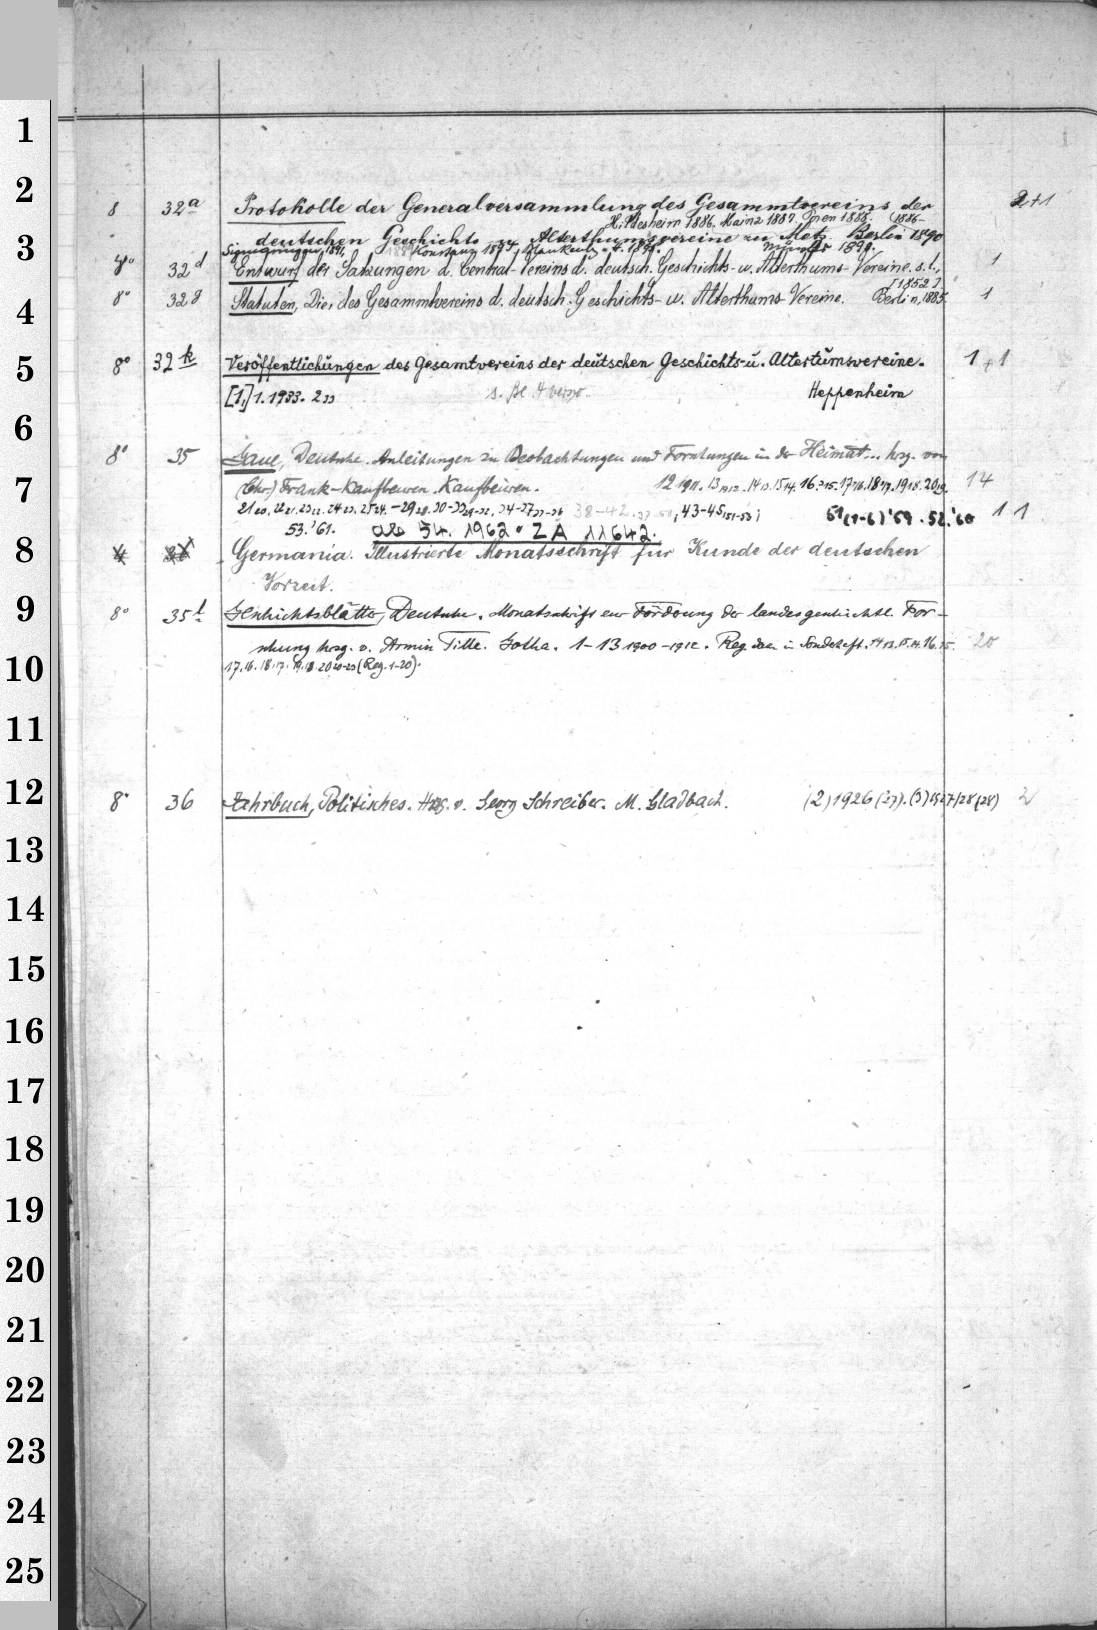 1
2
8 32a Protokolle der Generalversammlung des Gesammtvereins der 2+1
Hildesheim 1886. Mainz 1887. Posen 1888. (1886-
3
deutschen Geschichts- u. Alterthumsvereine zu Metz. Berlin 1890
Sigmaringen 1891. Konstanz Blankenburg Münster 1899.
4° 32d Entwurf der Satzungen d. Central-Vereins d. deutsch. Geschichts- u. Alterthums-Vereine. s. l., 1
[1852].
4
8° 32g Statuten, Die, des Gesammtvereins d. deutsch. Geschichts- u. Alterthums-Vereine. Berlin, 1885. 1
5
8° 32k Veröffentlichungen des Gesamtvereins der deutschen Geschichts- u. Altertumsvereine. 1+1
[1,] 1.1933. 2 33 Heppenheim
6
8° 35 Gaue, Deutsche. Anleitungen zu Beobachtungen und Forschungen in der Heimat... hrsg. von
7
(Chr.) Frank-Kaufbeuren. Kaufbeuren. 12 1911. 13 1912. 14 13. 15 14. 16 15. 17 16. 18 17. 19 18. 20 19. 14
21 20. 22 21. 23 22. 24 23. 25 24. -29 28. 30-33 29-32. 34-37 33-36 38-42. 43-45 (51-53); 51 (1-6) '59. 52. '60 11
53. '61. ab 54. 1962 = ZA 11642.
8
Germania. Illustrierte Monatsschrift für Kunde der deutschen
Vorzeit.
9
8° 35l Geschichtsblätter, Deutsche. Monatschrift zur Förderung der landesgeschichtl. For-
schung hrsg. v. Armin Tille. Gotha. 1-13 1900-1912. Reg. in Sonderheft. 14 13. 15 14. 16 15. 20
10
17.16. 18.17. 19.18. 20 20-23 (Reg. 1-20).
11
12
8° 36 Jahrbuch, Politisches. Hrsg. v. Georg Schreiber. M. Gladbach. (2) 1926 (27). (3) 1927/28 (28) 2
13
14
15
16
17
18
19
20
21
22
23
24
25